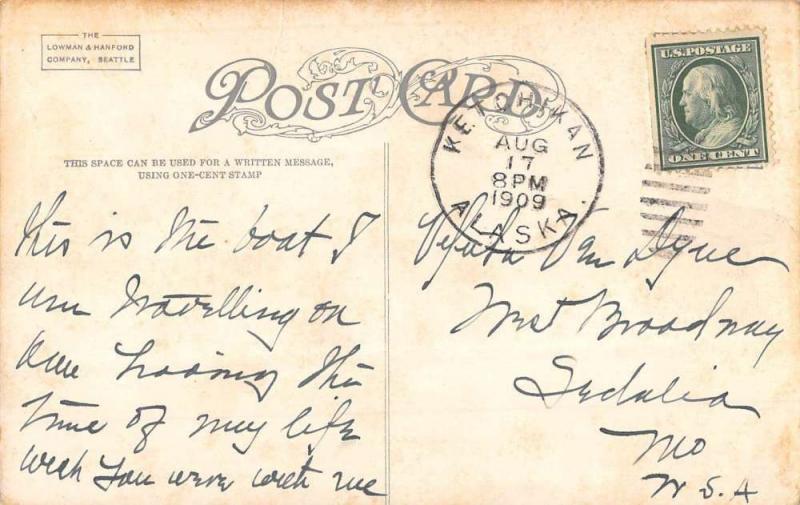 THE
LOWMAN & HANFORD
COMPANY, SEATTLE
POST CARD
THIS SPACE CAN BE USED FOR A WRITTEN MESSAGE,
USING ONE-CENT STAMP
This is the boat I
am travelling on
am having the
time of my life
wish you were with me
KETCHIKAN
AUG
17
8 PM
1909
ALASKA.
U.S. POSTAGE
ONE CENT
Van Dyne
West Broadway
Sedalia
Mo
U S. A